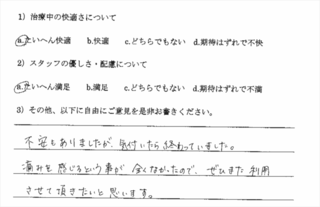 1）治療中の快適さについて
a.たいへん快適 b.快適 c.どちらでもない d.期待はずれで不快
2）スタッフの優しさ・配慮について
a.たいへん満足 b.満足 c.どちらでもない d.期待はずれで不満
3）その他、以下に自由にご意見を是非お書きください。
不安もありましたが、気付いたら終わっていました。
痛みを感じるという事が全くなかったので、ぜひまた利用
させて頂きたいと思います。